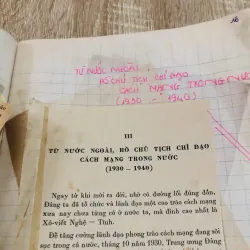 TỪ NƯỚC NGOÀI,
HỒ CHỦ TỊCH CHỈ ĐẠO
CÁCH MẠNG TRONG NƯỚC
(1930 - 1940)
III
TỪ NƯỚC NGOÀI, HỒ CHỦ TỊCH CHỈ ĐẠO
CÁCH MẠNG TRONG NƯỚC
(1930 - 1940)
Ngay từ khi mới ra đời, nhờ có đường lối đúng đắn,
Đảng ta đã tổ chức và lãnh đạo một cao trào cách mạng
xưa nay chưa từng có ở nước ta, mà đỉnh cao nhất là
Xô-viết Nghệ - Tĩnh.
Để tăng cường lãnh đạo phong trào cách mạng đang sôi
sục trong cả nước, tháng 10 năm 1930, Trung ương Đảng